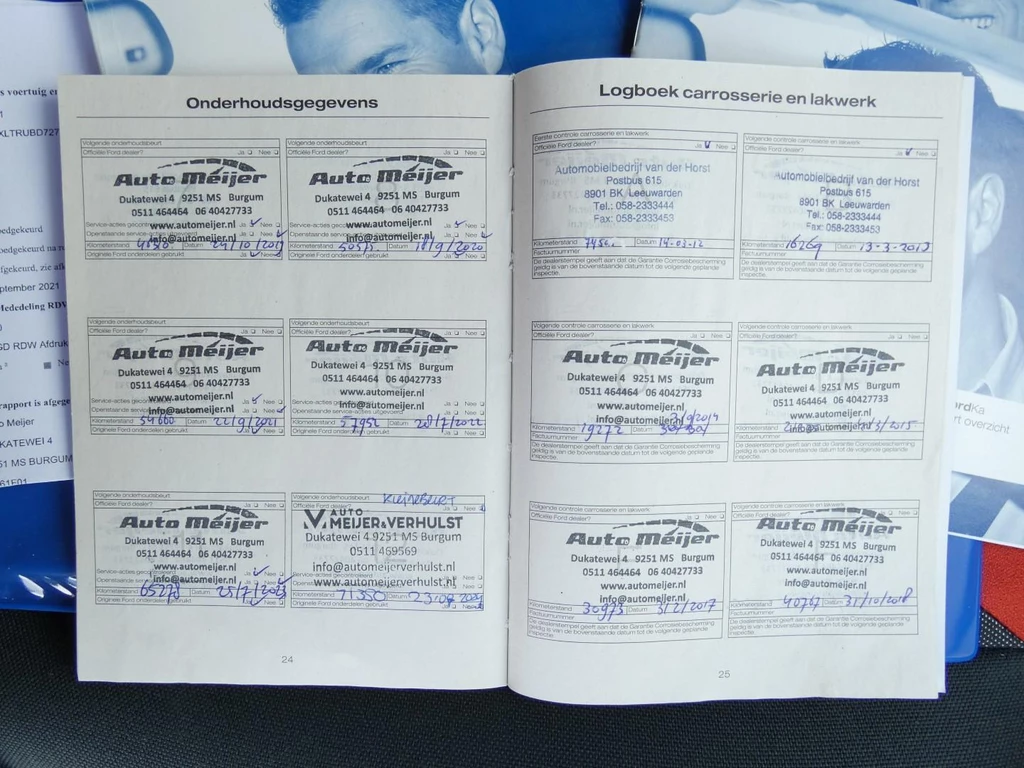 s voertuig en
XLTRUBD727
oedgekeurd
oedgekeurd na re
fgekeurd, zie afk
ptember 2021
Mededeling RDW
GD RDW Afdruk
rapport is afgege
o Meijer
KATEWEI 4
51 MS BURGUM
61F01
Onderhoudsgegevens
Volgende onderhoudsbeurt
Officiële Ford dealer? Ja Nee
Auto Meijer
Dukatewei 4 9251 MS Burgum
0511 464464 06 40427733
www.automeijer.nl
info@automeijer.nl
Kilometerstand Datum 29/10/2019
Originele Ford onderdelen gebruikt Ja Nee
Volgende onderhoudsbeurt
Officiële Ford dealer? Ja Nee
Auto Meijer
Dukatewei 4 9251 MS Burgum
0511 464464 06 40427733
www.automeijer.nl
info@automeijer.nl
Kilometerstand Datum 18/9/2020
Originele Ford onderdelen gebruikt Ja Nee
Volgende onderhoudsbeurt
Officiële Ford dealer? Ja Nee
Auto Meijer
Dukatewei 4 9251 MS Burgum
0511 464464 06 40427733
www.automeijer.nl
info@automeijer.nl
Kilometerstand 54660 Datum 22/9/2021
Originele Ford onderdelen gebruikt Ja Nee
Volgende onderhoudsbeurt
Officiële Ford dealer? Ja Nee
Auto Meijer
Dukatewei 4 9251 MS Burgum
0511 464464 06 40427733
www.automeijer.nl
info@automeijer.nl
Kilometerstand 57952 Datum 28/7/2022
Originele Ford onderdelen gebruikt Ja Nee
Volgende onderhoudsbeurt
Officiële Ford dealer? Ja Nee
Auto Meijer
Dukatewei 4 9251 MS Burgum
0511 464464 06 40427733
www.automeijer.nl
info@automeijer.nl
Kilometerstand 65278 Datum 25/7/2023
Originele Ford onderdelen gebruikt Ja Nee
Volgende onderhoudsbeurt
Officiële Ford dealer? Ja Nee
AUTO
MEIJER & VERHULST
Dukatewei 4 9251 MS Burgum
0511 469569
info@automeijerverhulst.nl
www.automeijerverhulst.nl
Kilometerstand 71350 Datum
Originele Ford onderdelen gebruikt Ja Nee
24
Logboek carrosserie en lakwerk
Eerste controle carrosserie en lakwerk
Officiële Ford dealer? Ja Nee
Automobielbedrijf van der Horst
Postbus 615
8901 BK Leeuwarden
Tel.: 058-2333444
Fax: 058-2333453
Kilometerstand Datum 14-03-12
Factuurnummer
De dealerstempel geeft aan dat de Garantie Corrosiebescherming
geldig is van bovenstaande datum tot de volgende geplande
inspectie.
Volgende controle carrosserie en lakwerk
Officiële Ford dealer? Ja Nee
Automobielbedrijf van der Horst
Postbus 615
8901 BK Leeuwarden
Tel.: 058-2333444
Fax: 058-2333453
Kilometerstand 16269 Datum
Factuurnummer
De dealerstempel geeft aan dat de Garantie Corrosiebescherming
geldig is van bovenstaande datum tot de volgende geplande
inspectie.
Volgende controle carrosserie en lakwerk
Officiële Ford dealer? Ja Nee
Auto Meijer
Dukatewei 4 9251 MS Burgum
0511 464464 06 40427733
www.automeijer.nl
info@automeijer.nl
Kilometerstand 19272 Datum
Factuurnummer
De dealerstempel geeft aan dat de Garantie Corrosiebescherming
geldig is van bovenstaande datum tot de volgende geplande
inspectie.
Volgende controle carrosserie en lakwerk
Officiële Ford dealer? Ja Nee
Auto Meijer
Dukatewei 4 9251 MS Burgum
0511 464464 06 40427733
www.automeijer.nl
info@automeijer.nl
Factuurnummer
De dealerstempel geeft aan dat de Garantie Corrosiebescherming
geldig is van bovenstaande datum tot de volgende geplande
inspectie.
Volgende controle carrosserie en lakwerk
Officiële Ford dealer?
Auto Meijer
Dukatewei 4 9251 MS Burgum
0511 464464 06 40427733
www.automeijer.nl
info@automeijer.nl
Kilometerstand 30973 Datum 3/2/2017
Factuurnummer
De dealerstempel geeft aan dat de Garantie Corrosiebescherming
geldig is van bovenstaande datum tot de volgende geplande
inspectie.
Volgende controle carrosserie en lakwerk
Officiële Ford dealer?
Auto Meijer
Dukatewei 4 9251 MS Burgum
0511 464464 06 40427733
www.automeijer.nl
info@automeijer.nl
Kilometerstand Datum 31/10/2018
Factuurnummer
De dealerstempel geeft aan dat de Garantie Corrosiebescherming
geldig is van bovenstaande datum tot de volgende geplande
inspectie.
25
rdKa
rt overzicht